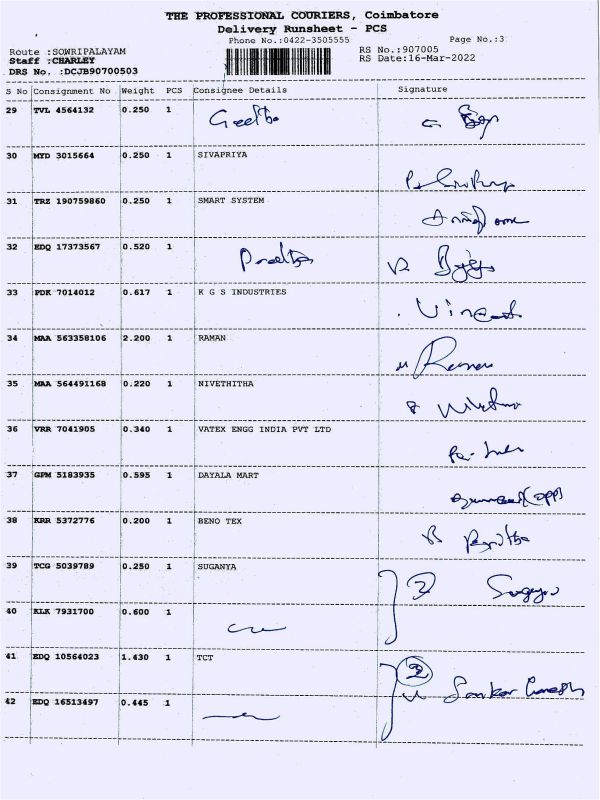 THE PROFESSIONAL COURIERS, Coimbatore
Delivery Runsheet - PCS
Phone No.:0422-3505555 Page No.:3
Route :SOWRIPALAYAM RS No.:907005
Staff :CHARLEY RS Date:16-Mar-2022
DRS No. :DCJB90700503
S No Consignment No Weight PCS Consignee Details Signature
29 TVL 4564132 0.250 1 Geetha
30 MYD 3015664 0.250 1 SIVAPRIYA
31 TRZ 190759860 0.250 1 SMART SYSTEM
32 EDQ 17373567 0.520 1
33 PDK 7014012 0.617 1 K G S INDUSTRIES Vincent
34 MAA 563358106 2.200 1 RAMAN Raman
35 MAA 564491168 0.220 1 NIVETHITHA
36 VRR 7041905 0.340 1 VATEX ENGG INDIA PVT LTD
37 GPM 5183935 0.595 1 DAYALA MART (opp)
38 KRR 5372776 0.200 1 BENO TEX
39 TCG 5039789 0.250 1 SUGANYA 2 Suganya
40 KLK 7931700 0.600 1
41 EDQ 10564023 1.430 1 TCT 2 Sankar Ganesh
42 EDQ 16513497 0.445 1